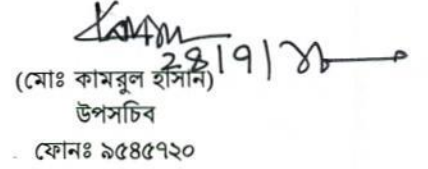 (মোঃ কামরুল হাসান)
উপসচিব
ফোনঃ ৯৫৪৫৭২০